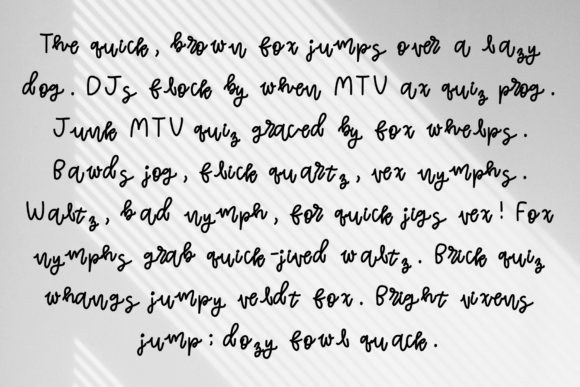 The quick, brown fox jumps over a lazy
dog. DJs flock by when MTV ax quiz prog.
Junk MTV quiz graced by fox whelps.
Bawds jog, flick quartz, vex nymphs.
Waltz, bad nymph, for quick jigs vex! Fox
nymphs grab quick-jived waltz. Brick quiz
whangs jumpy veldt fox. Bright vixens
jump; dozy fowl quack.